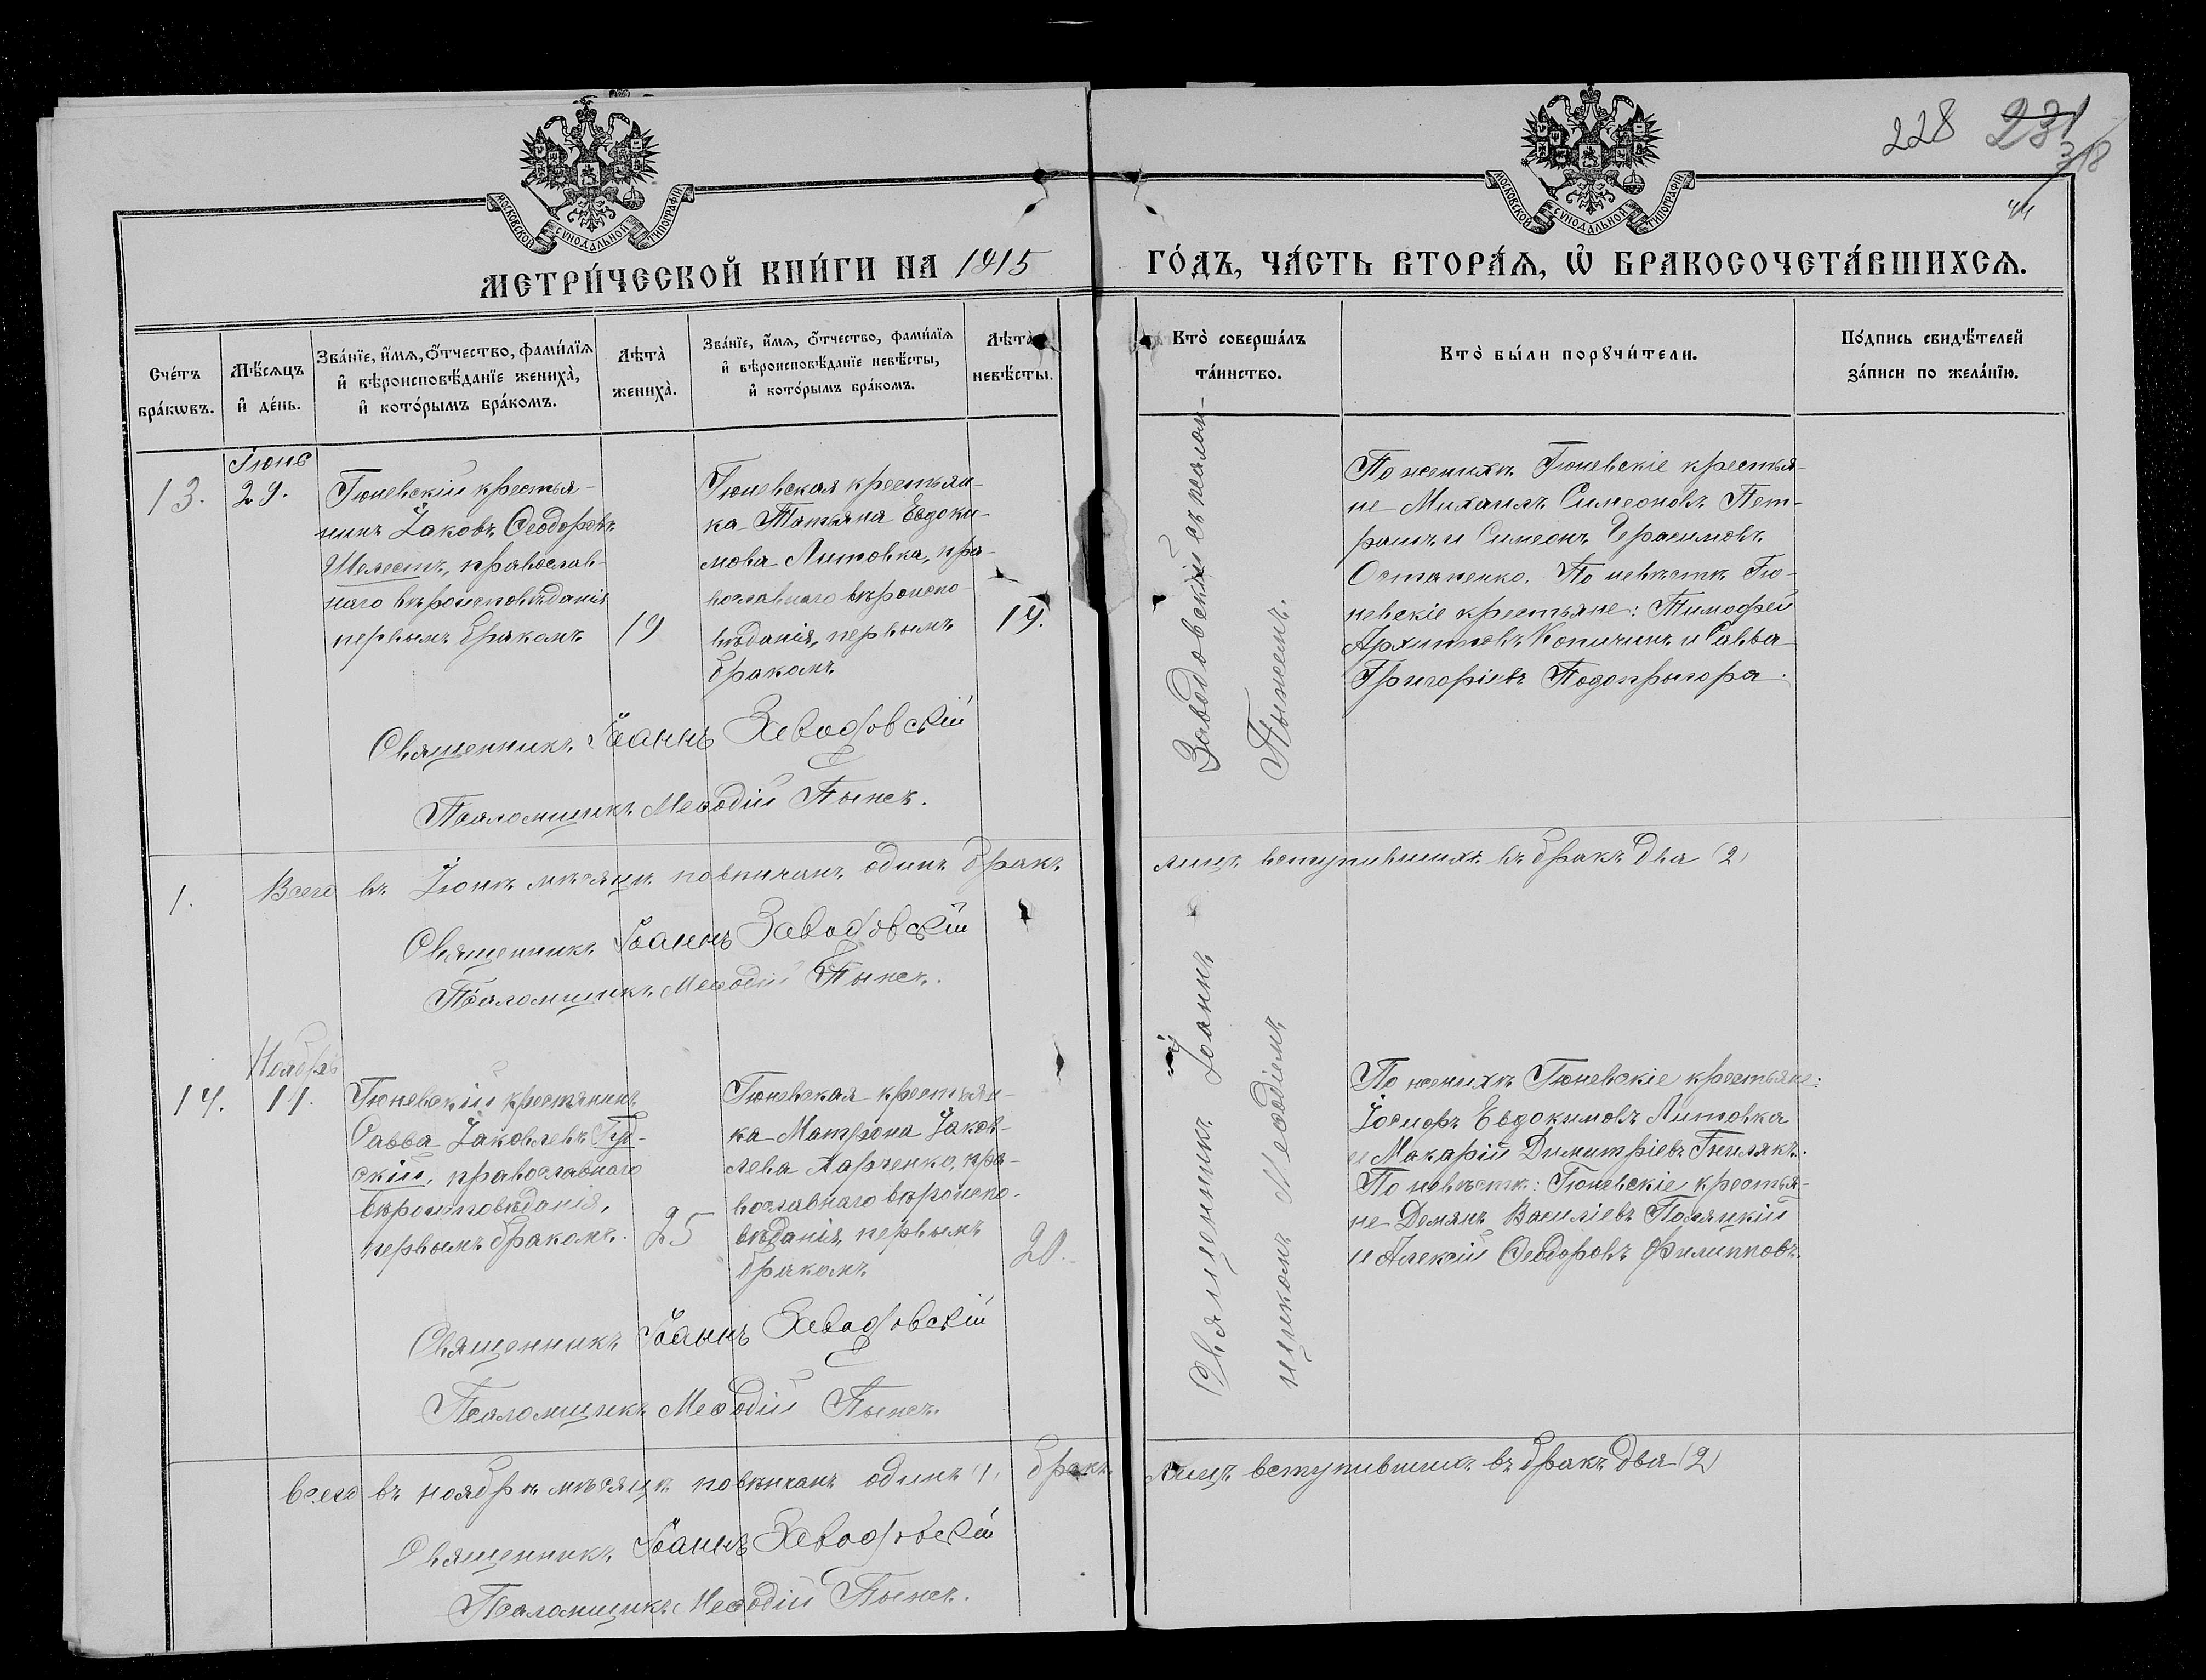 228 231
318
44
МОСКОВСКОЙ СѴНОДАЛЬНОЙ ТИПОГРАФІИ
МОСКОВСКОЙ СѴНОДАЛЬНОЙ ТИПОГРАФІИ
МЕТРИ́ЧЕСКОЙ КНИ́ГИ НА 1915
ГО́ДЪ, ЧА́СТЬ ВТОРА́Ѧ, Ѡ҆ БРАКОСОЧЕТА́ВШИХСѦ.
Сче́тъ
бра́кѡвъ.
Мѣ́сѧцъ
и҆ де́нь.
Зва́нїе, и҆́мѧ, ѻ҆́тчество, фами́лїѧ
и҆ вѣроисповѣ́данїе жениха̀,
и҆ кото́рымъ бра́комъ.
Лѣта̀
жениха̀.
Зва́нїе, и҆́мѧ, ѻ҆́тчество, фами́лїѧ
и҆ вѣроисповѣ́данїе невѣ́сты,
и҆ кото́рымъ бра́комъ.
Лѣта̀
невѣ́сты.
Кто̀ соверша́лъ
та́инство.
Кто̀ бы́ли порꙋчи́тели.
По́дпись свидѣ́телей
за́писи по жела́нїю.
13.
Іюнь
29.
Гюневскій крестья-
нинъ Іаковъ Ѳеодоровъ
Шелестъ, православ-
наго вѣроисповѣданія
первымъ бракомъ
19
Гюневская крестьян-
ка Татьяна Евдоки-
мова Литовка, пра-
вославнаго вѣроиспо-
вѣданія, первымъ
бракомъ
19.
Священникъ Іоаннъ Заводовскій
Псаломщикъ Меѳодій Пыжъ.
По женихѣ Гюневскіе крестья-
не Михаилъ Симеоновъ Пет-
рашъ и Симеонъ Герасимовъ
Остапенко. По невѣстѣ Гю-
невскіе крестьяне: Тимофей
Архиповъ Копичинъ и Савва
Григоріевъ Подопригора.
1.
Всего въ Іюнѣ мѣсяцѣ повѣнчанъ одинъ бракъ
лицъ вступившихъ въ бракъ два (2)
Священникъ Іоаннъ Заводовскій
Псаломщикъ Меѳодій Пыжъ.
Священникъ Іоаннъ Заводовскій съ псалом-
щикомъ Меѳодіемъ Пыжемъ.
14.
Ноябрь
11.
Гюневскій крестянинъ
Савва Іаковлевъ Гуд-
скій, православнаго
вѣроисповѣданія,
первымъ бракомъ.
25
Гюневская крестьян-
ка Матрона Іаков-
лева Харченко, пра-
вославнаго вѣроиспо-
вѣданія, первымъ
бракомъ
20.
Священникъ Іоаннъ Заводовскій
Псаломщикъ Меѳодій Пыжъ.
По женихѣ Гюневскіе крестьяне:
Іосифъ Евдокимовъ Литовка
и Макарій Димитріевъ Гнилякъ.
По невѣстѣ: Гюневскіе крестья-
не Демянъ Василіевъ Поляцкій
и Алексій Ѳеодоровъ Филипповъ.
Всего въ ноябрѣ мѣсяцѣ повѣнчанъ одинъ (1) бракъ
лицъ вступившихъ въ бракъ два (2)
Священникъ Іоаннъ Заводовскій
Псаломщикъ Меѳодій Пыжъ.